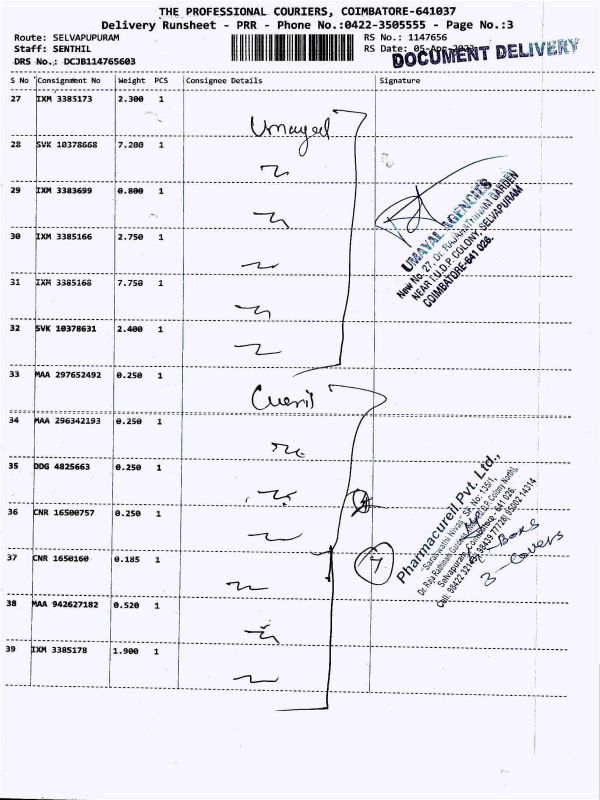 THE PROFESSIONAL COURIERS, COIMBATORE-641037
Delivery Runsheet - PRR - Phone No.:0422-3505555 - Page No.:3
Route: SELVAPUPURAM
RS No.: 1147656
Staff: SENTHIL
RS Date: 05-Apr-2023
DOCUMENT DELIVERY
DRS No.: DCJB114765603
S No Consignment No Weight PCS Consignee Details Signature
27 IXM 3385173 2.300 1
Umayal
28 SVK 10378668 7.200 1
29 IXM 3383699 0.800 1
30 IXM 3385166 2.750 1
31 IXM 3385168 7.750 1
32 SVK 10378631 2.400 1
UMAYAL AGENCIES
New No. 27, Dr. RAJARATHINAM GARDEN
NEAR T.U.D.P. COLONY, SELVAPURAM
COIMBATORE-641 026.
33 MAA 297652492 0.250 1
Cureil
34 MAA 296342193 0.250 1
35 DDG 4825663 0.250 1
36 CNR 16500757 0.250 1
37 CNR 1650160 0.185 1
38 MAA 942627182 0.520 1
39 IXM 3385178 1.900 1
Pharmacureil Pvt. Ltd.,
"Saraswathi Nivas", SF. No: 135/1,
Selvapuram, Coimbatore - 641 026.
3 - Covers